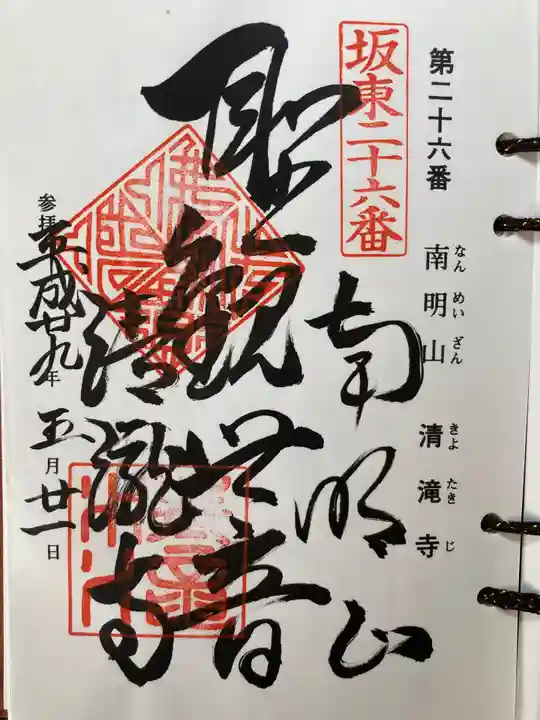 第二十六番
南明山 清滝寺
なんめいざん きよたきじ
坂東二十六番
南明山
聖観世音
清瀧寺
参拝 平成廿九年 五月廿一日